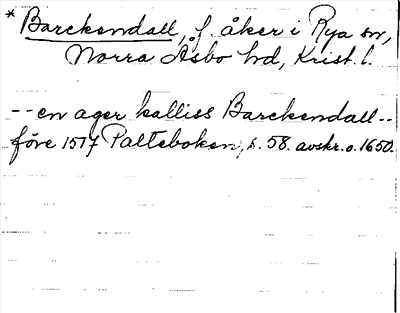 * Barckendall, f. åker i Rya sn,
Norra Åsbo hd, Krist. l.
-- en ager kalliss Barckendall --
före 1517 Palteboken, s. 58. avskr. o. 1650.